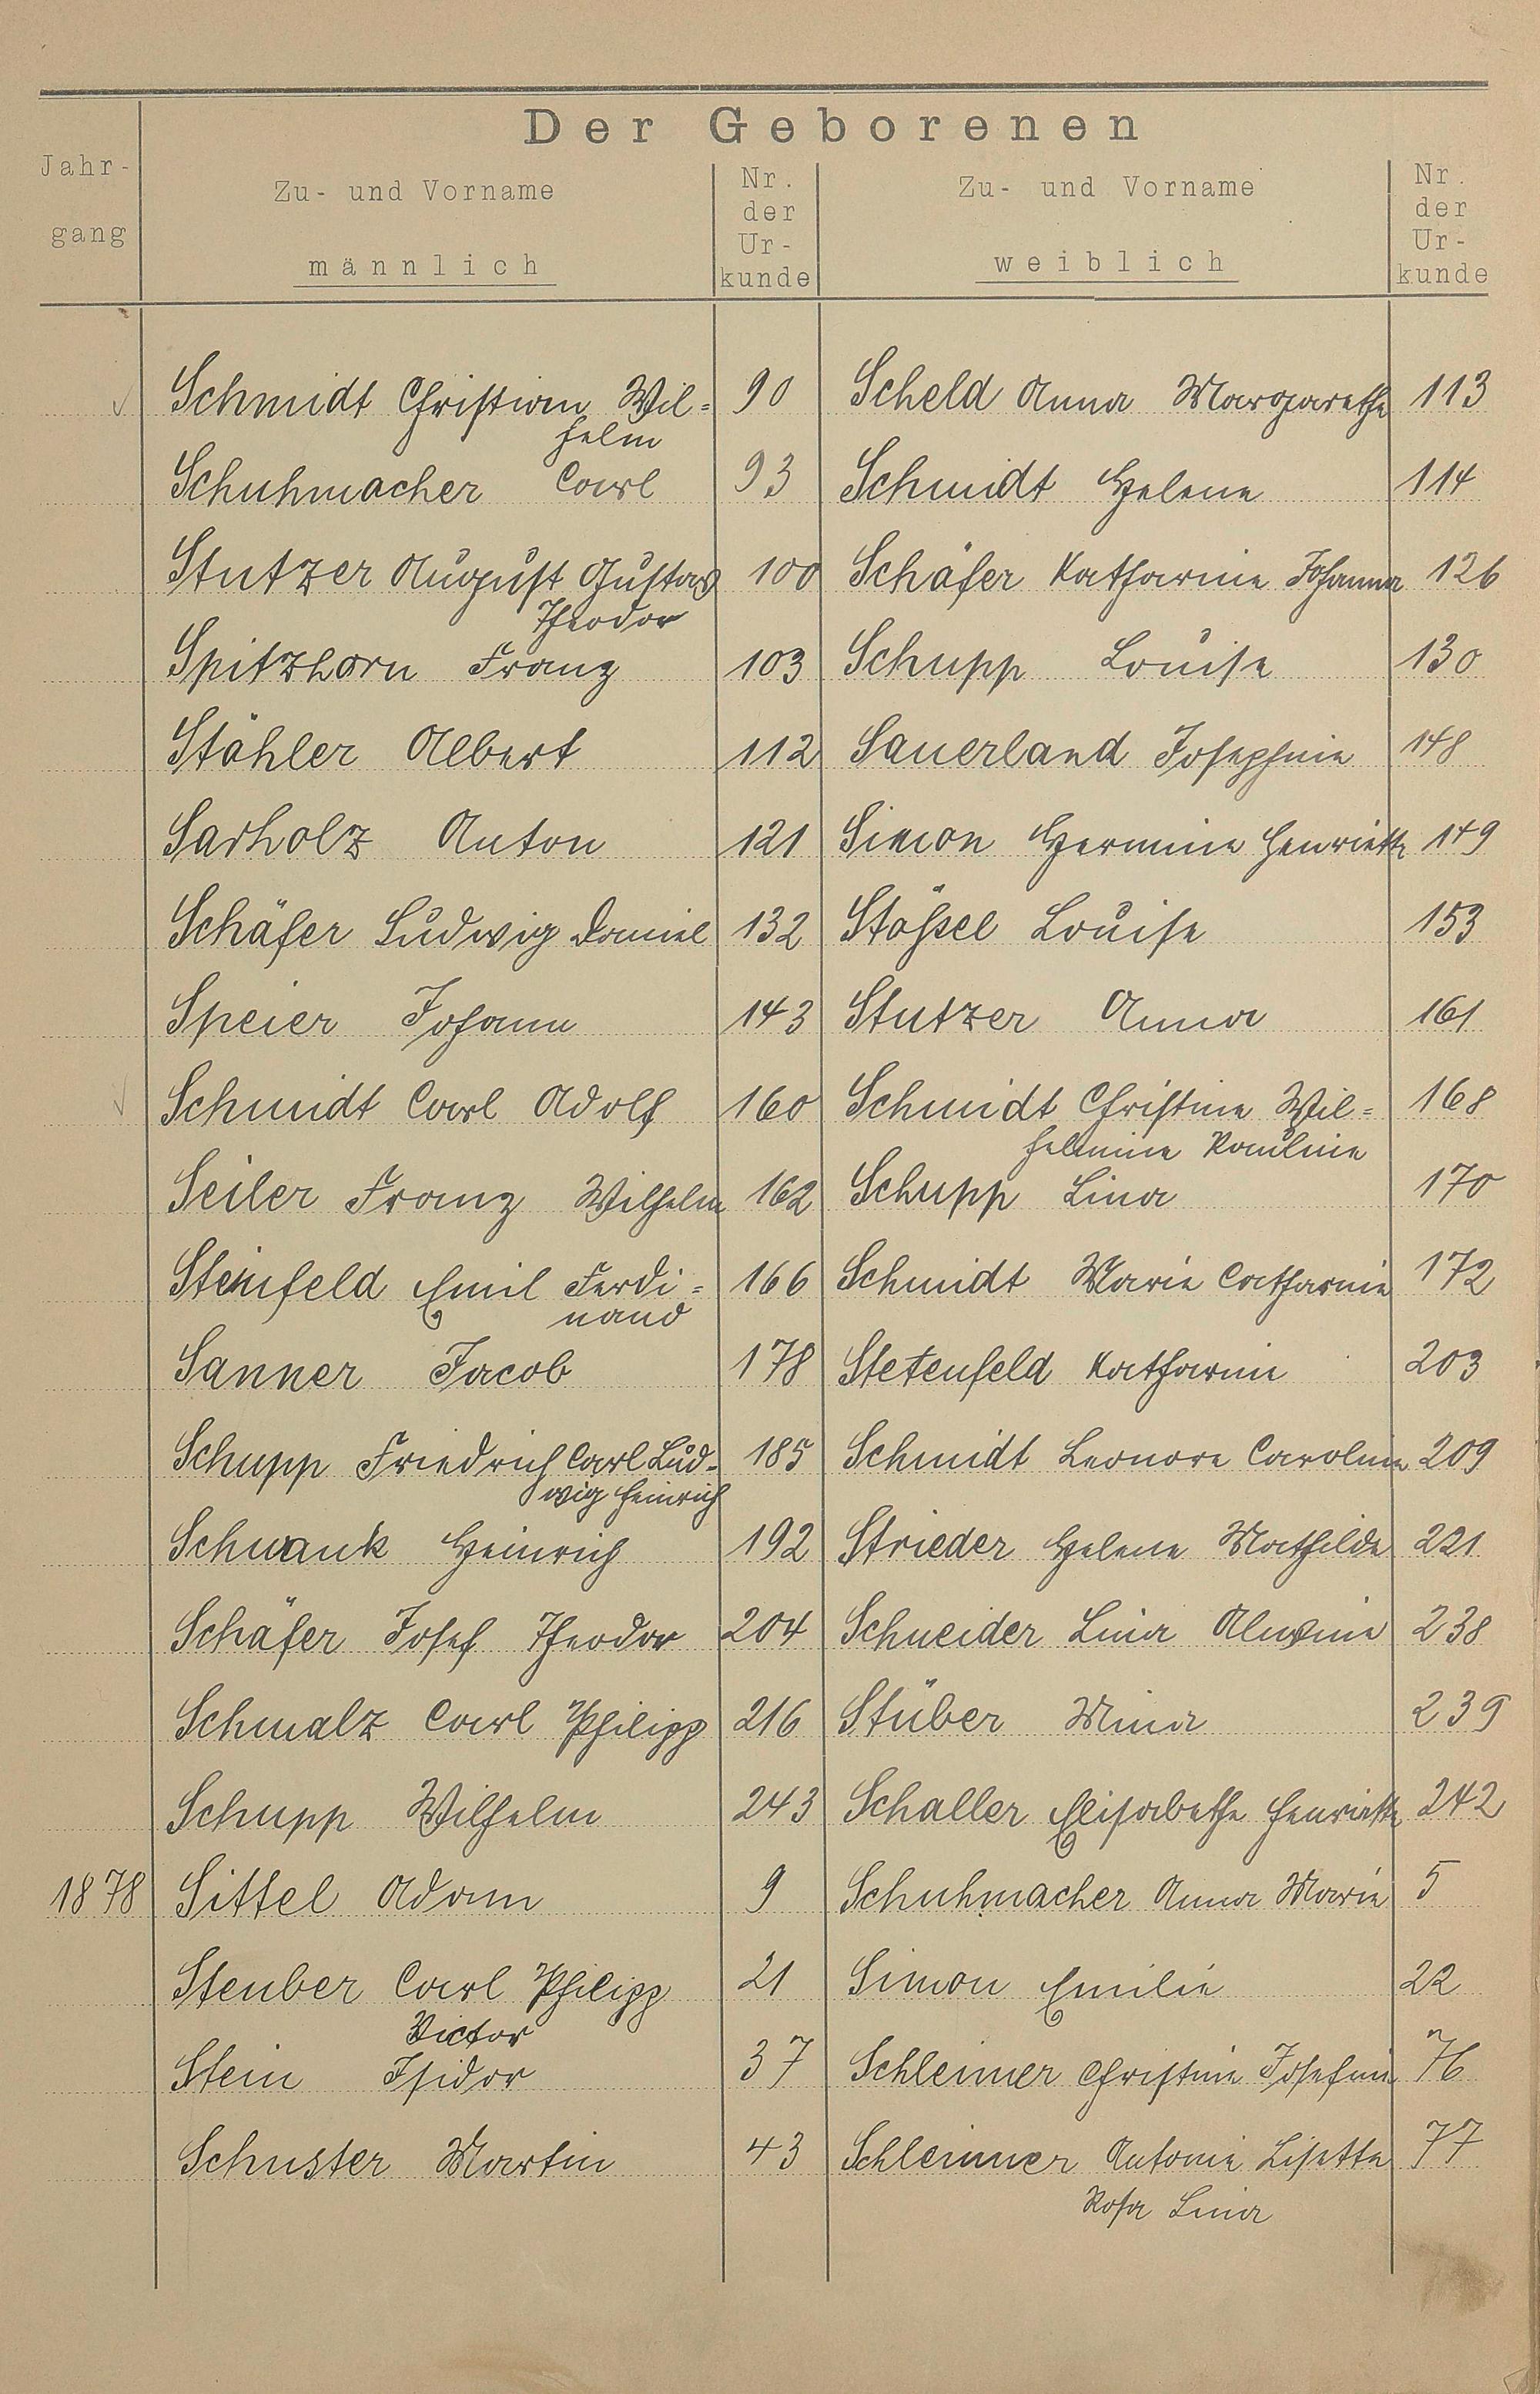 Der Geborenen
Jahr-
gang
Zu- und Vorname
männlich
Nr.
der
Ur-
kunde
Zu- und Vorname
weiblich
Nr.
der
Ur-
kunde
Schmidt Christian Wil= 90 Scheld Anna Margarethe 113
helm
Schuhmacher Carl 93 Schmidt Helene 114
Stutzer August Gustav 100 Schäfer Katharine Johanna 126
Theodor
Spitzhorn Franz 103 Schupp Louise 130
Stähler Albert 112 Sauerland Josephine 148
Sarholz Anton 121 Simon Hermine Henriette 149
Schäfer Ludwig Daniel 132 Stößel Louise 153
Speier Johann 143 Stutzer Anna 161
Schmidt Carl Adolf 160 Schmidt Christine Wil= 168
helmine Pauline
Seiler Franz Wilhelm 162 Schupp Lina 170
Steinfeld Emil Ferdi= 166 Schmidt Marie Catharine 172
nand
Sanner Jacob 178 Stetenfeld Katharine 203
Schupp Friedrich Carl Lud- 185 Schmidt Leonore Caroline 209
wig Heinrich
Schwank Heinrich 192 Strieder Helene Mathilde 221
Schäfer Josef Theodor 204 Schneider Lina Alwine 238
Schmalz Carl Philipp 216 Stüber Mina 239
Schupp Wilhelm 243 Schaller Elisabethe Henriette 242
1878 Sittel Adam 9 Schuhmacher Anna Marie 5
Steuber Carl Philipp 21 Simon Emilie 22
Victor
Stein Isidor 37 Schleimer Christine Josefine 76
Schuster Martin 43 Schleimer Antonie Lisette 77
Rosa Lina